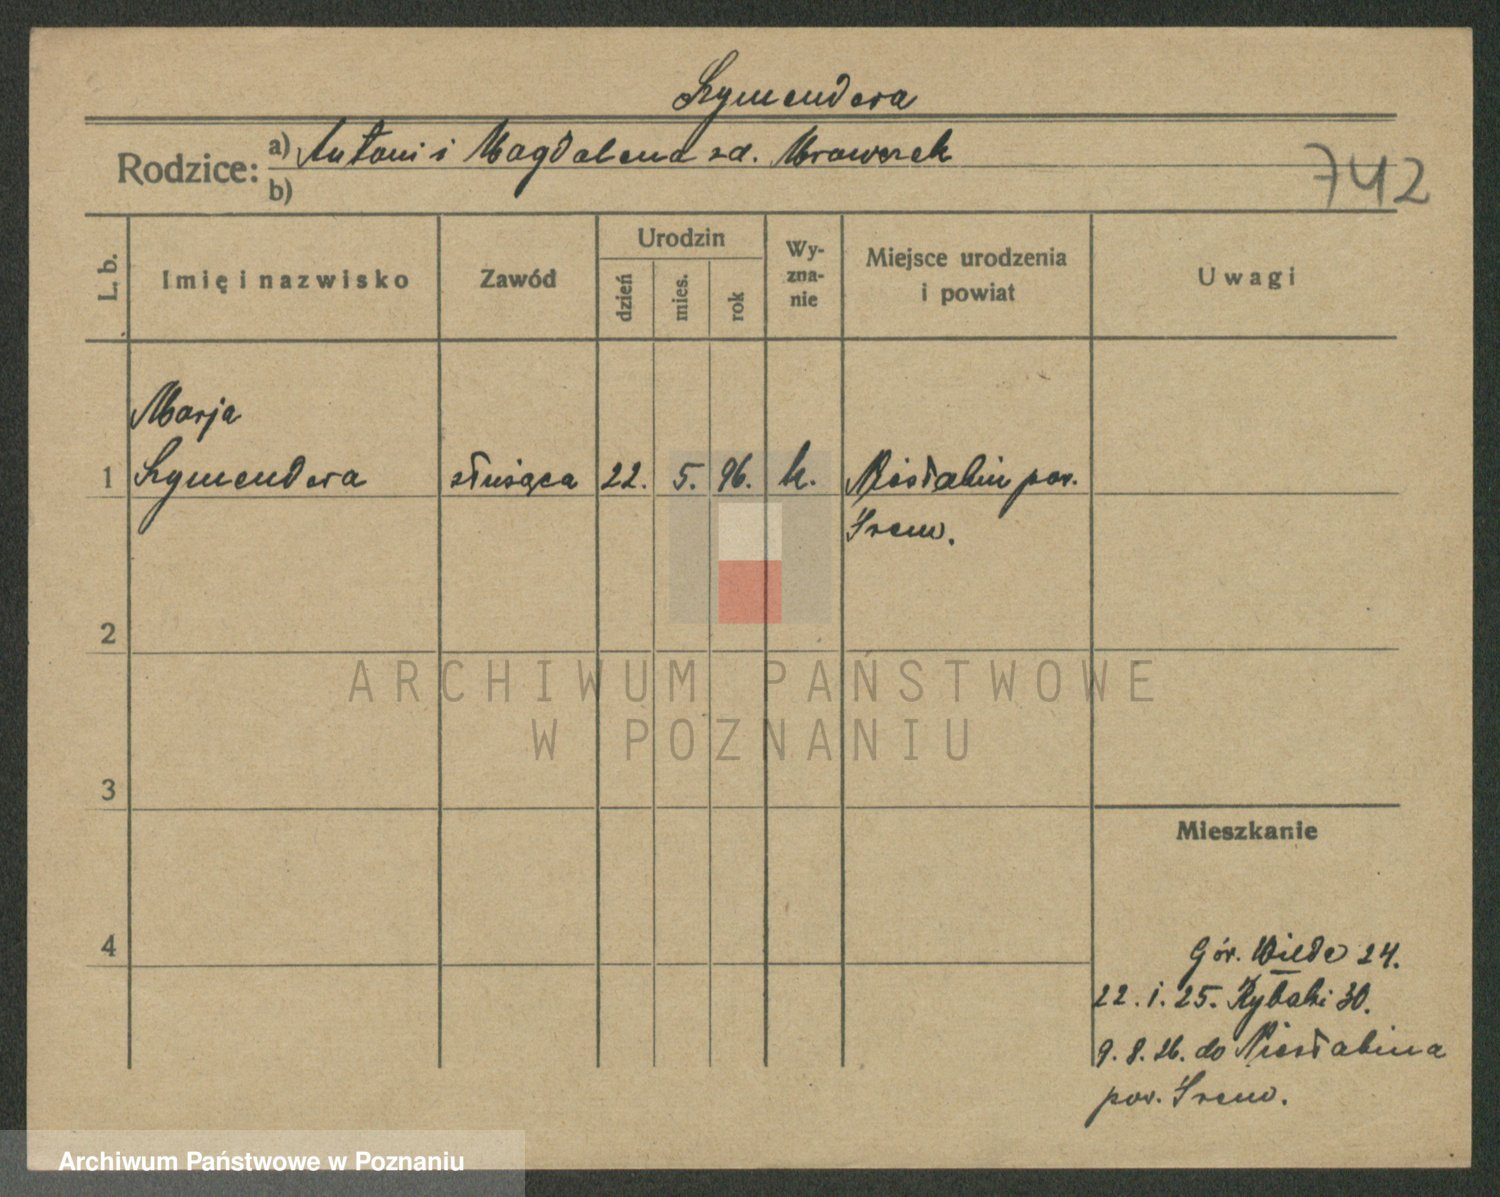 Szymendera
Rodzice: a) Antoni i Magdalena zd. Mrowczek
b)
742
L. b.
Imię i nazwisko
Zawód
Urodzin
dzień
mies.
rok
Wy-
zna-
nie
Miejsce urodzenia
i powiat
Uwagi
Marja
1 Szymendera służąca 22. 5. 96. k. Niesłabin pow.
Śrem.
2
3
4
Mieszkanie
Gór. Wilda 24.
22. 1. 25. Rybaki 30.
9. 8. 26. do Niesłabina
pow. Śrem.
ARCHIWUM PAŃSTWOWE
W POZNANIU
Archiwum Państwowe w Poznaniu